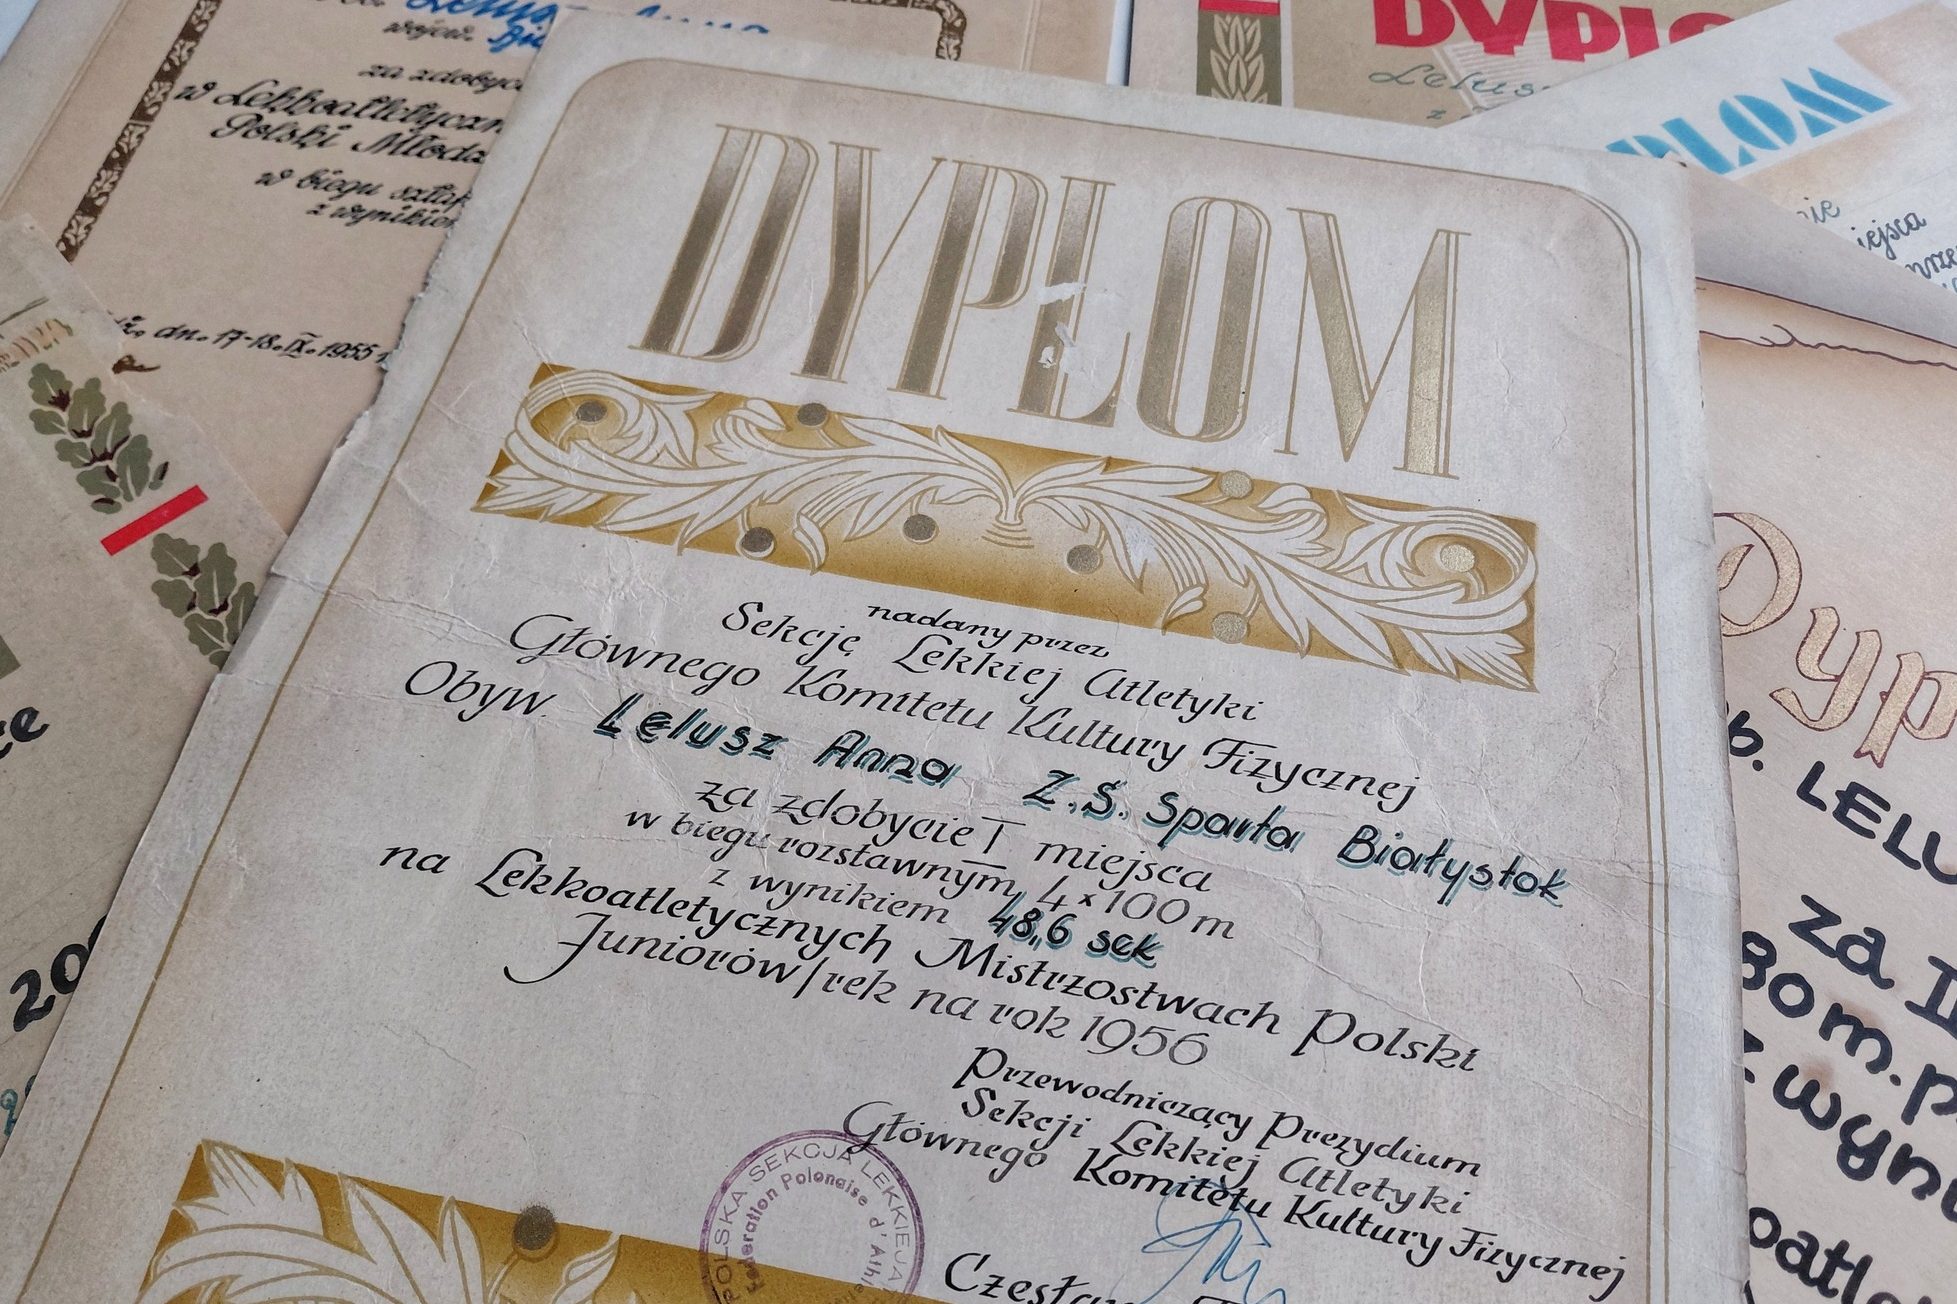 DYPŁOM
nadany przez
Sekcję Lekkiej Atletyki
Głównego Komitetu Kultury Fizycznej
Obyw. Lelusz Anna Z.S. Sparta Białystok
za zdobycie I miejsca
w biegu rozstawnym 4×100 m
z wynikiem 48,6 sek
na Lekkoatletycznych Mistrzostwach Polski
Juniorów/rek na rok 1956
Przewodniczący Prezydium
Sekcji Lekkiej Atletyki
Głównego Komitetu Kultury Fizycznej
POLSKA SEKCJA LEKKIEJ
Federation Polonaise d'
wojew.
za
w
Polski
w biegu
z
dn. 17-18.IX.1955
DYPLO
z
Dyp
ob. LELU
za
80 m.
z